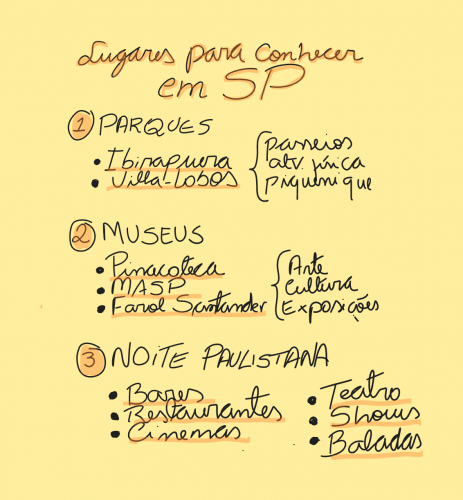 Lugares para conhecer
em SP
1 PARQUES
• Ibirapuera
• Villa-Lobos
passeios
atv. física
piquenique
2 MUSEUS
• Pinacoteca
• MASP
• Farol Santander
Arte
Cultura
Exposições
3 NOITE PAULISTANA
• Bares
• Restaurantes
• Cinemas
• Teatro
• Shows
• Baladas